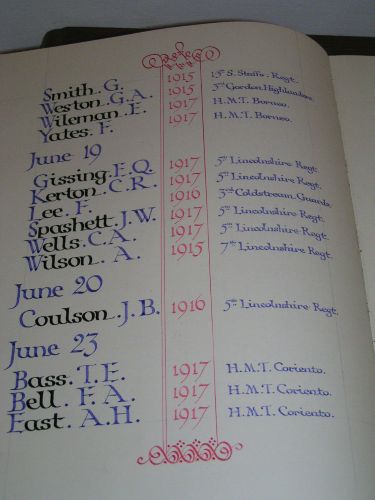 Smith. G. 1915 1st S. Staffs. Regt.
Weston. G. A. 1915 3rd Gordon Highlanders
Wileman. E. 1917 H.M.T. Borneo.
Yates. F. 1917 H.M.T. Borneo.
June 19
Gissing. E. Q. 1917 5th Lincolnshire Regt.
Kerton. C. R. 1917 5th Lincolnshire Regt.
Lee. F. 1916 3rd Coldstream Guards
Spashett. J. W. 1917 5th Lincolnshire Regt.
Wells. C. A. 1917 5th Lincolnshire Regt.
Wilson. A. 1915 7th Lincolnshire Regt.
June 20
Coulson. J. B. 1916 5th Lincolnshire Regt.
June 23
Bass. T. E. 1917 H.M.T. Coriento.
Bell. F. A. 1917 H.M.T. Coriento.
East. A. H. 1917 H.M.T. Coriento.